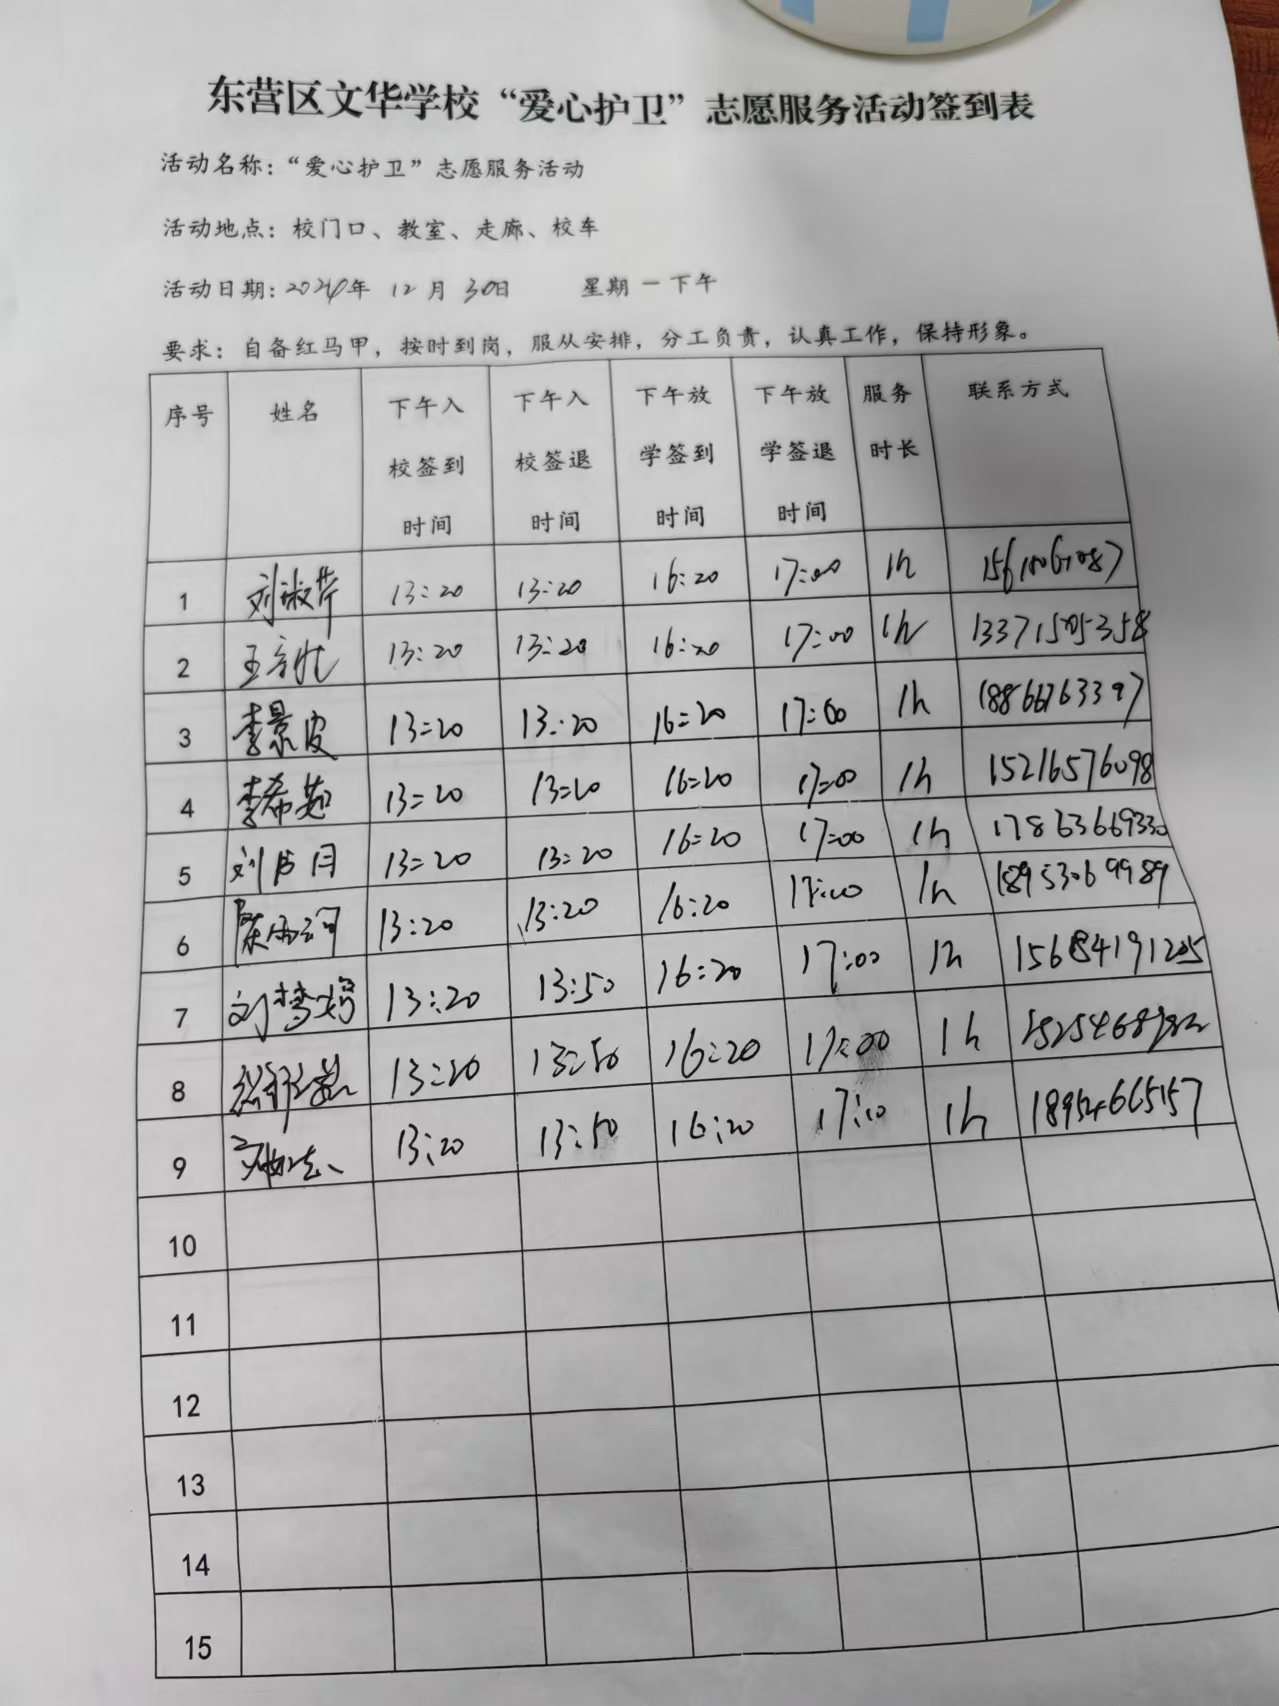 东营区文华学校“爱心护卫”志愿服务活动签到表
活动名称：“爱心护卫”志愿服务活动
活动地点：校门口、教室、走廊、校车
活动日期：2024年 12月 30日 星期一下午
要求：自备红马甲，按时到岗，服从安排，分工负责，认真工作，保持形象。
序号 姓名 下午入校签到时间 下午入校签退时间 下午放学签到时间 下午放学签退时间 服务时长 联系方式
1 刘淑芹 13:20 13:20 16:20 17:00 1h
2 13:20 13:20 16:20 17:00 1h 13371505358
3 李景 13:20 13:20 16:20 17:00 1h 18866763397
4 李希茹 13:20 13:20 16:20 17:00 1h 15216576098
5 刘 月 13:20 13:20 16:20 17:00 1h 17863669330
6 13:20 13:20 16:20 17:00 1h 18953069989
7 刘梦婷 13:20 13:50 16:20 17:00 1h 15684191205
8 13:20 13:50 16:20 17:00 1h
9 13:20 13:50 16:20 17:10 1h 18954665157
10
11
12
13
14
15